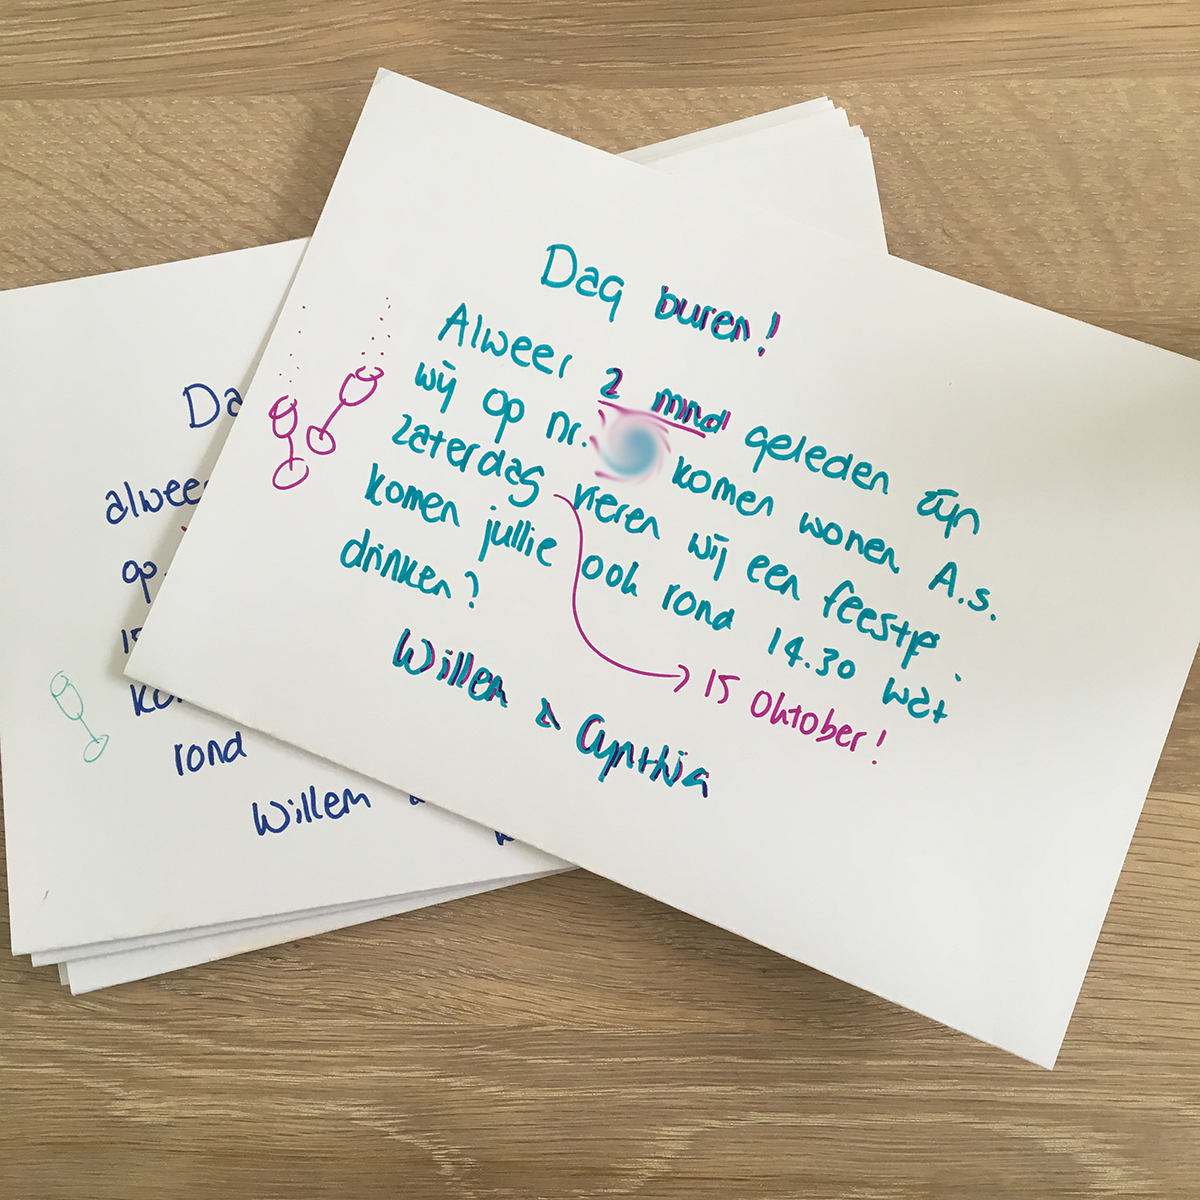 Dag buren!
Alweer 2 mnd geleden zijn
wij op nr. komen wonen. A.s.
zaterdag vieren wij een feestje.
komen jullie ook rond 14.30 wat
drinken?
15 Oktober!
Willem & Cynthia
Da
alwee
op
15
ko
rond
Willem